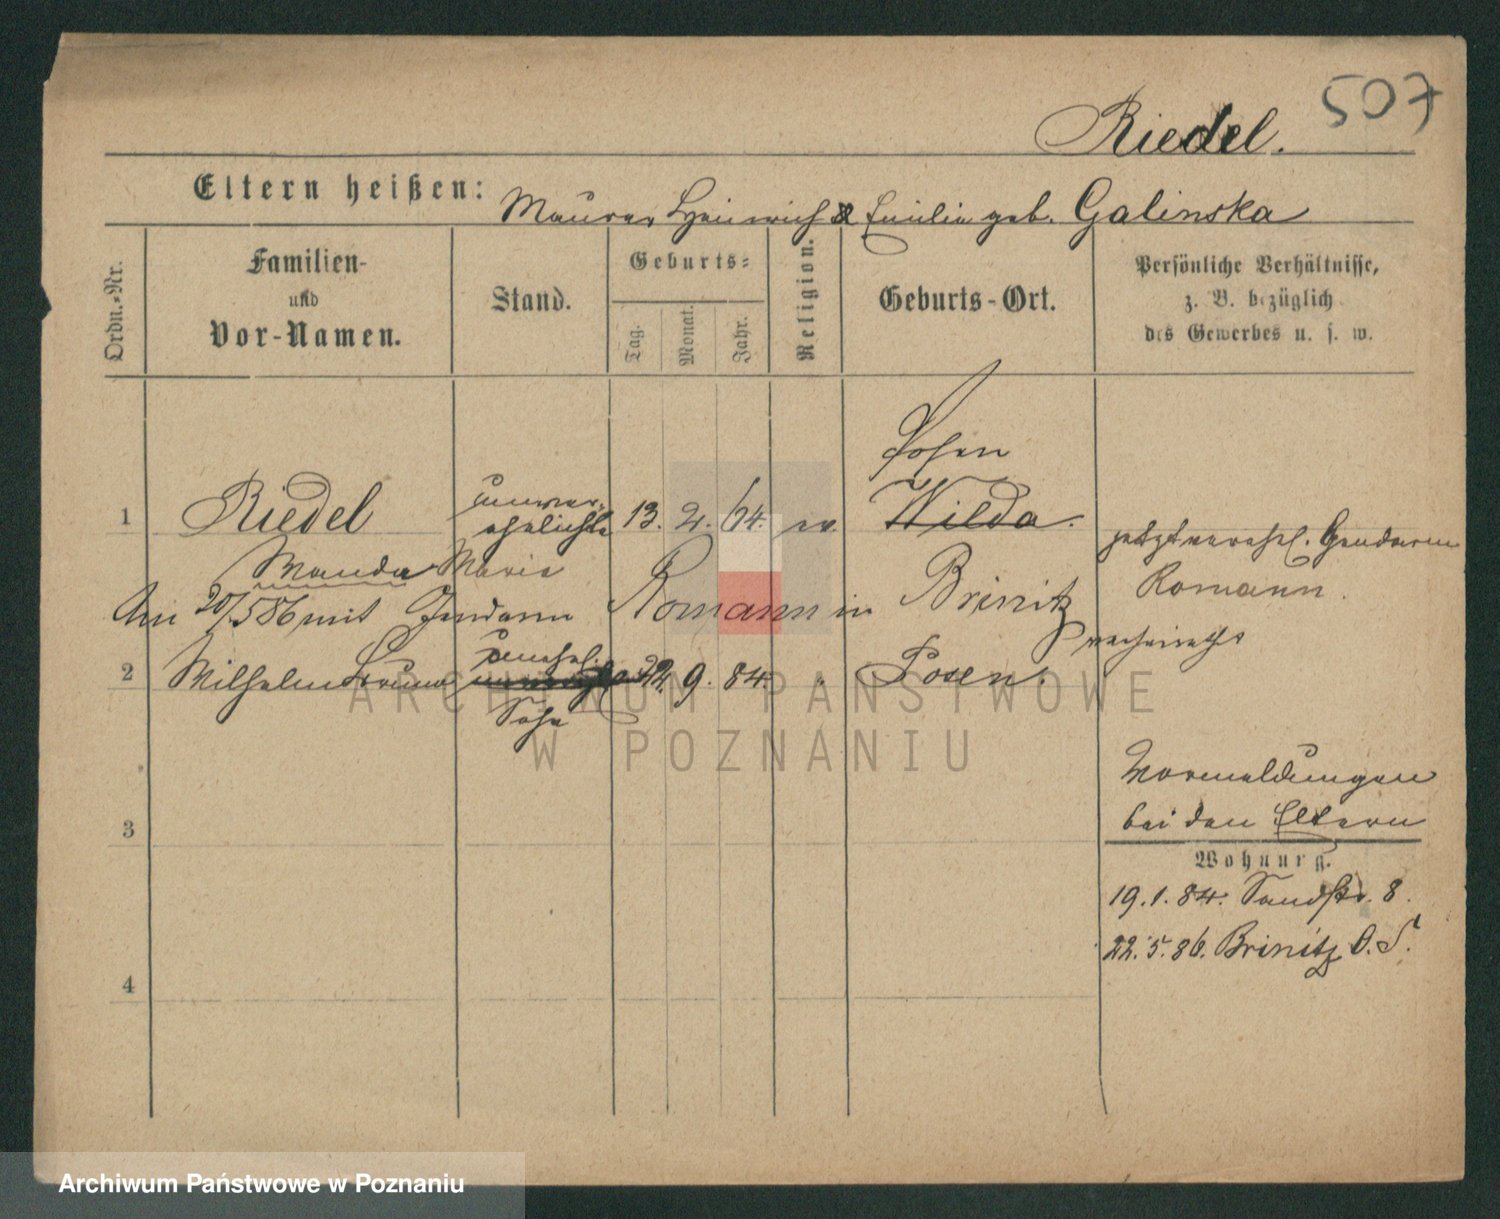 507
Riedel.
Eltern heißen: Maurer Heinrich & Emilie geb. Galinska
Ordn.-Nr.
Familien- und Vor-Namen.
Stand.
Geburts-
Tag. Monat. Jahr.
Religion.
Geburts-Ort.
Persönliche Verhältnisse, z. B. bezüglich des Gewerbes u. s. w.
Posen
1 Riedel unver-ehelichte 13. 2. 64. ev. Wilda.
jetzt verehel. Gendarm
Romann.
Wanda Marie
Am 20/5 86 mit Gendarm Romann in Brinitz
verheirathet
2 Wilhelm Bruno unehel. Sohn 22. 9. 84. " Posen.
3
Vormeldungen
bei den Eltern
Wohnung.
19. 1. 84. Sandstr. 8.
22. 5. 86. Brinitz O.S.
4
ARCHIWUM PAŃSTWOWE
W POZNANIU
Archiwum Państwowe w Poznaniu